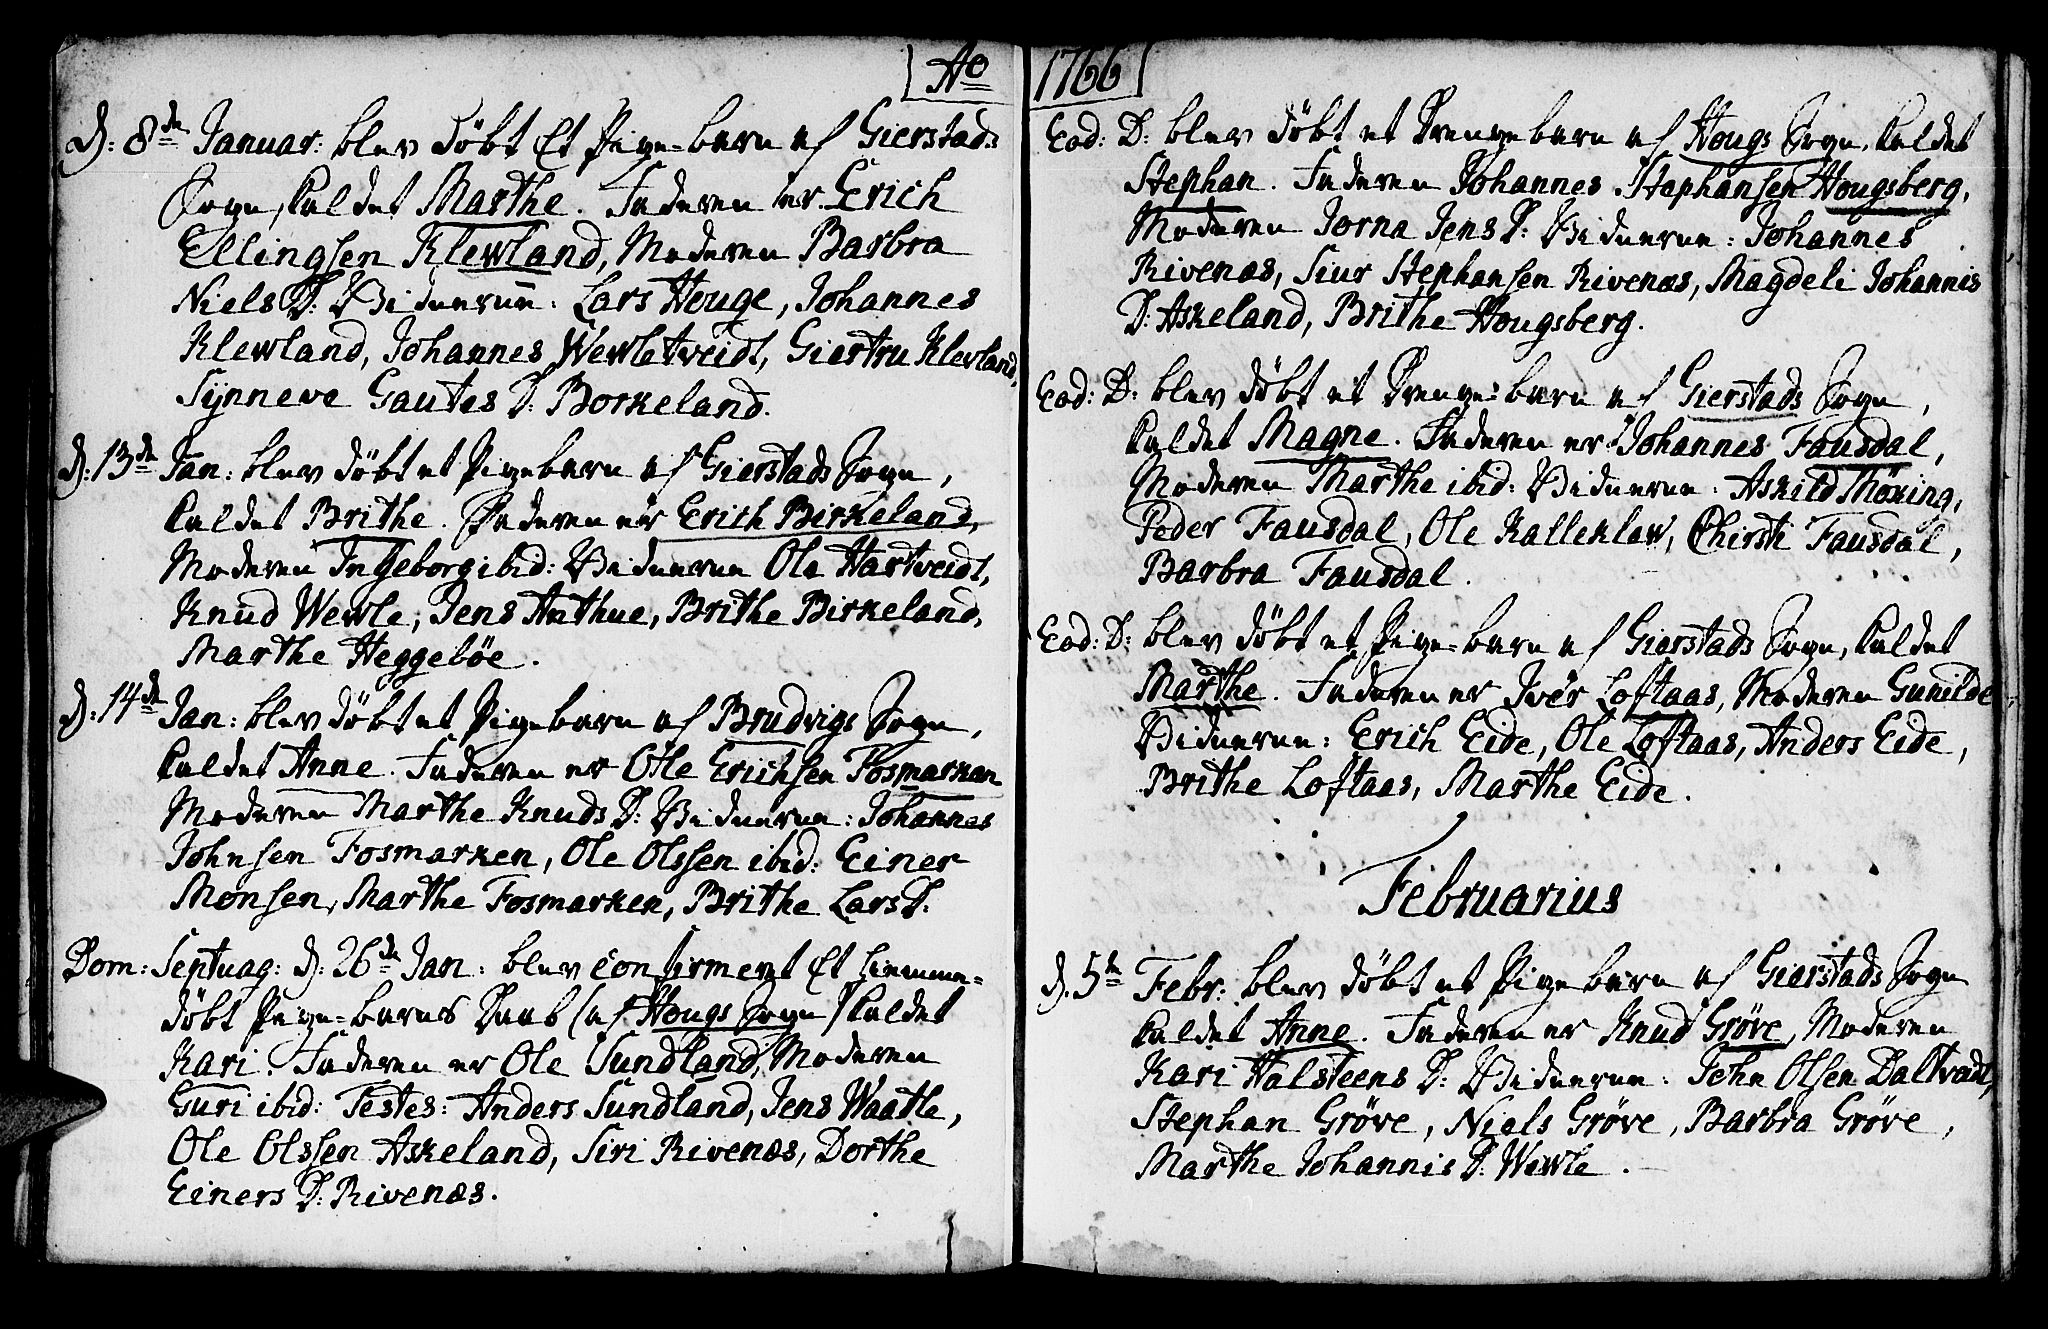 Ao 1766
D: 8de Januar: blev døbt Et Pige-barn af Gierstads
Sogn, kaldet Marthe. Faderen er Erich
Ellingsen Klewland, Moderen Barbra
Niels D: Vidnerne: Lars Houge, Johannes
Klewland, Johannes Wewletveidt, Giertru Klevland,
Sÿnneve Gautes D: Borkeland.
D: 13de Jan: blev døbt et Pigebarn af Gierstads Sogn,
kaldet Brithe. Faderen er Erich Birkeland,
Moderen Ingeborg ibid: Vidnerne Ole Hartveidt,
Knud Wewle, Jens Anthue, Brithe Birkeland,
Marthe Heggeböe.
D: 14de Jan: blev døbt et Pigebarn af Brudvigs Sogn,
kaldet Anne. Faderen er Ole Erichsen Fosmarken
Moderen Marthe Knuds D: Vidnerne: Johannes
Johnsen Fosmarken, Ole Olssen ibid: Einer
Monsen, Marthe Fosmarken, Brithe Lars D:
Dom: Septuag: D: 26de Jan: blev confirmert Et hiemme-
døbt Pige-barns Daab (af Hougs Sogn) kaldet
Kari. Faderen er Ole Sundland, Moderen
Guri ibid: Testes: Anders Sundland, Jens Waatle,
Ole Olssen Askeland, Siri Rivenæs, Dorthe
Einers D: Rivenæs.
Eod: D: blev døbt et Drengebarn af Hougs Sogn, kaldet
Stephan. Faderen Johannes Stephansen Hougsberg,
Moderen Jorna Jens D: Vidnerne: Johannes
Rivenæs, Siur Stephansen Rivenæs, Magdeli Johannis
D: Askeland, Brithe Hougsberg.
Eod: D: blev døbt et Drenge-barn af Gierstads Sogn,
kaldet Magne. Faderen er Johannes Fausdal,
Moderen Marthe ibid: Vidnerne: Askild Möxing,
Peder Fausdal, Ole Kalleklew, Chirsti Fausdal,
Barbra Fausdal.
Eod: D: blev døbt et Pige-barn af Gierstads Sogn, kaldet
Marthe. Faderen er Iver Loftaas, Moderen Gunilde
Vidnerne: Erich Eide, Ole Loftaas, Anders Eide,
Brithe Loftaas, Marthe Eide.
Februarius
D. 5te Febr: blev døbt et Pigebarn af Gierstads Sogn
kaldet Anne. Faderen er Knud Gröve, Moderen
Kari Halsteens D: Vidnerne: John Olsen Daltveidt,
Stephan Gröve, Niels Gröve, Barbra Gröve,
Marthe Johannis D: Wewle.